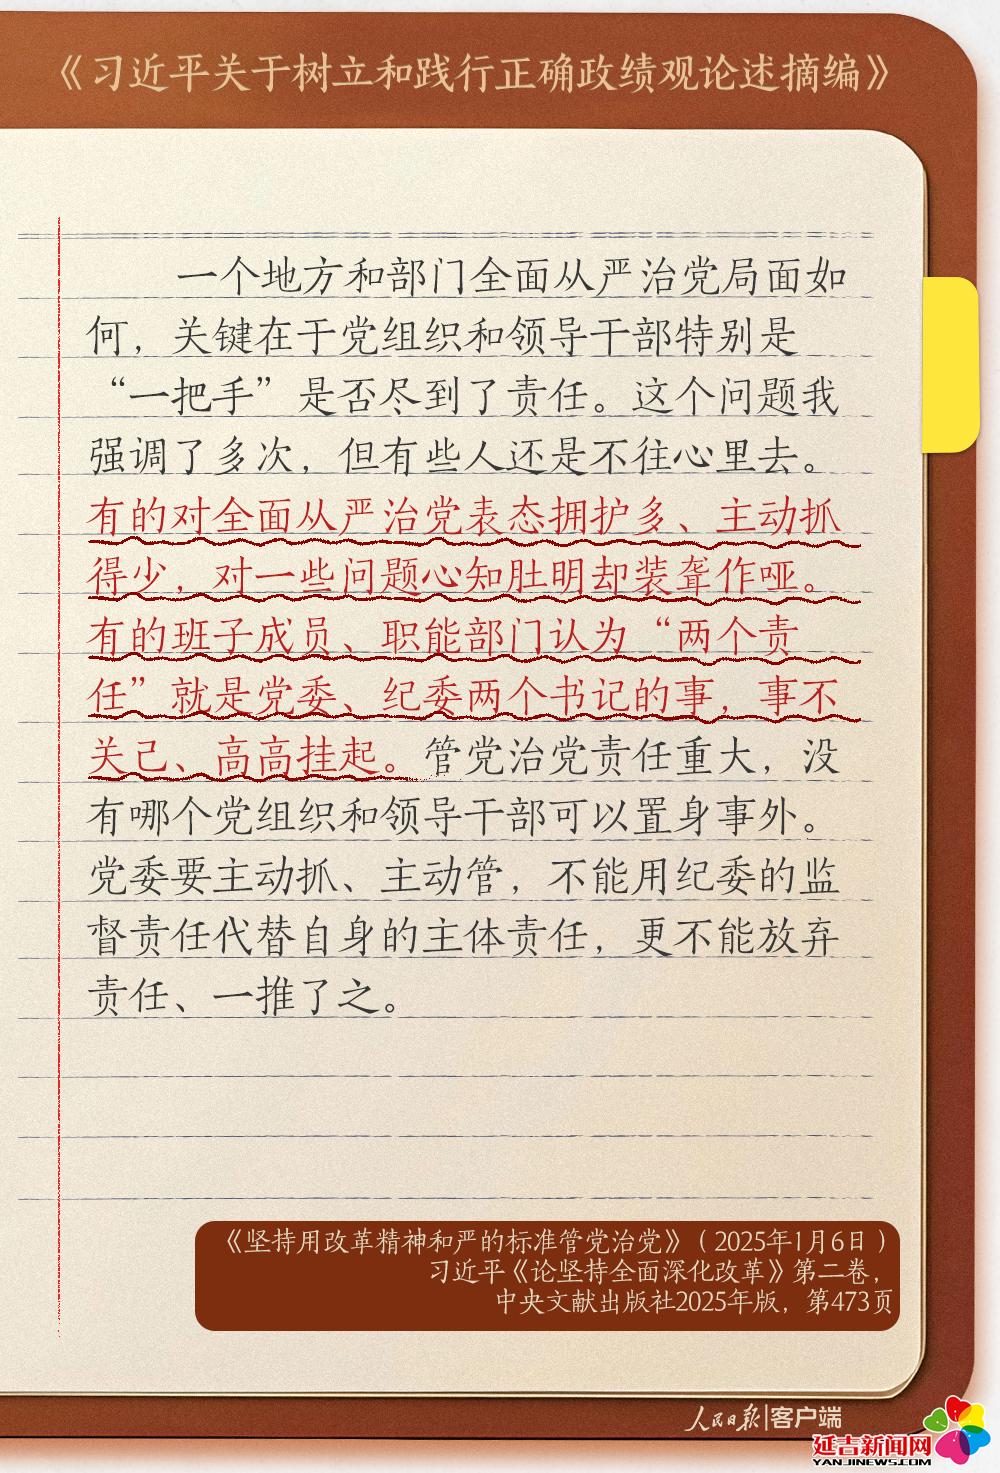 《习近平关于树立和践行正确政绩观论述摘编》
一个地方和部门全面从严治党局面如
何，关键在于党组织和领导干部特别是
“一把手”是否尽到了责任。这个问题我
强调了多次，但有些人还是不往心里去。
有的对全面从严治党表态拥护多、主动抓
得少，对一些问题心知肚明却装聋作哑。
有的班子成员、职能部门认为“两个责
任”就是党委、纪委两个书记的事，事不
关己、高高挂起。管党治党责任重大，没
有哪个党组织和领导干部可以置身事外。
党委要主动抓、主动管，不能用纪委的监
督责任代替自身的主体责任，更不能放弃
责任、一推了之。
《坚持用改革精神和严的标准管党治党》（2025年1月6日）
习近平《论坚持全面深化改革》第二卷，
中央文献出版社2025年版，第473页
人民日报|客户端
延吉新闻网
YANJINEWS.COM